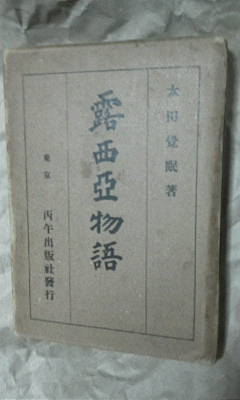 太田覺眠著
露西亞物語
東京 丙午出版社發行